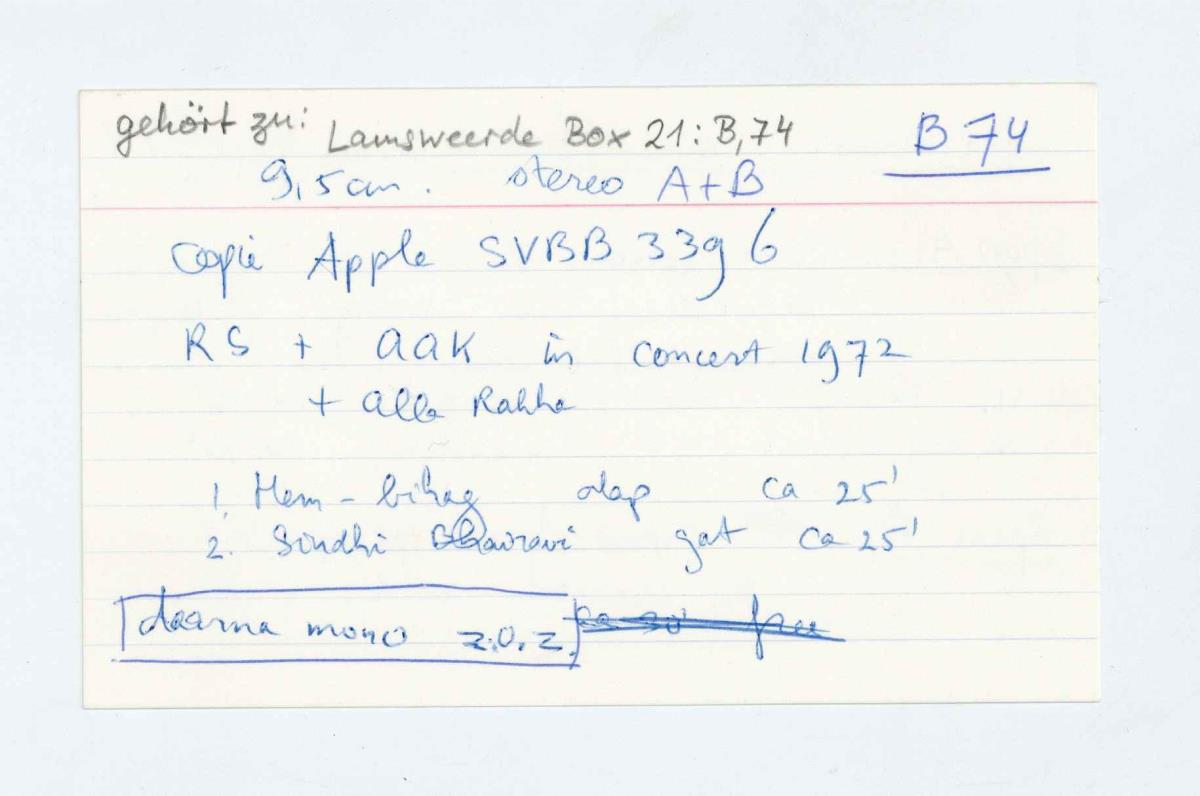 gehört zu: Lamsweerde Box 21: B,74
B 74
9,5 cm. stereo A+B
Copie Apple SVBB 3396
RS + AAK in concert 1972
+ Alla Rakha
1. Hem-bihag alap ca 25'
2. Sindhi Bhairavi gat ca 25'
daarna mono z.o.z.